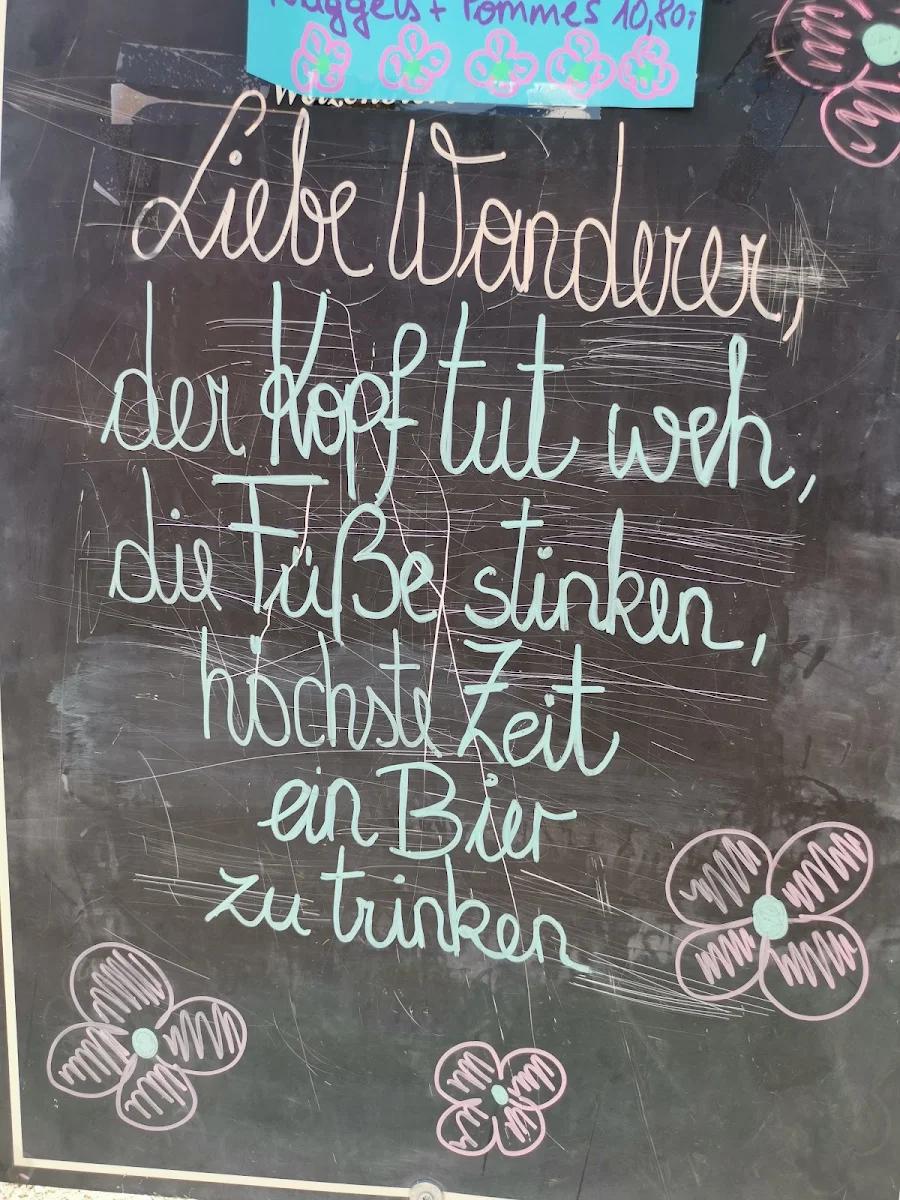 Nuggets + Pommes 10,80
Liebe Wanderer,
der Kopf tut weh,
die Füße stinken,
höchste Zeit
ein Bier
zu trinken